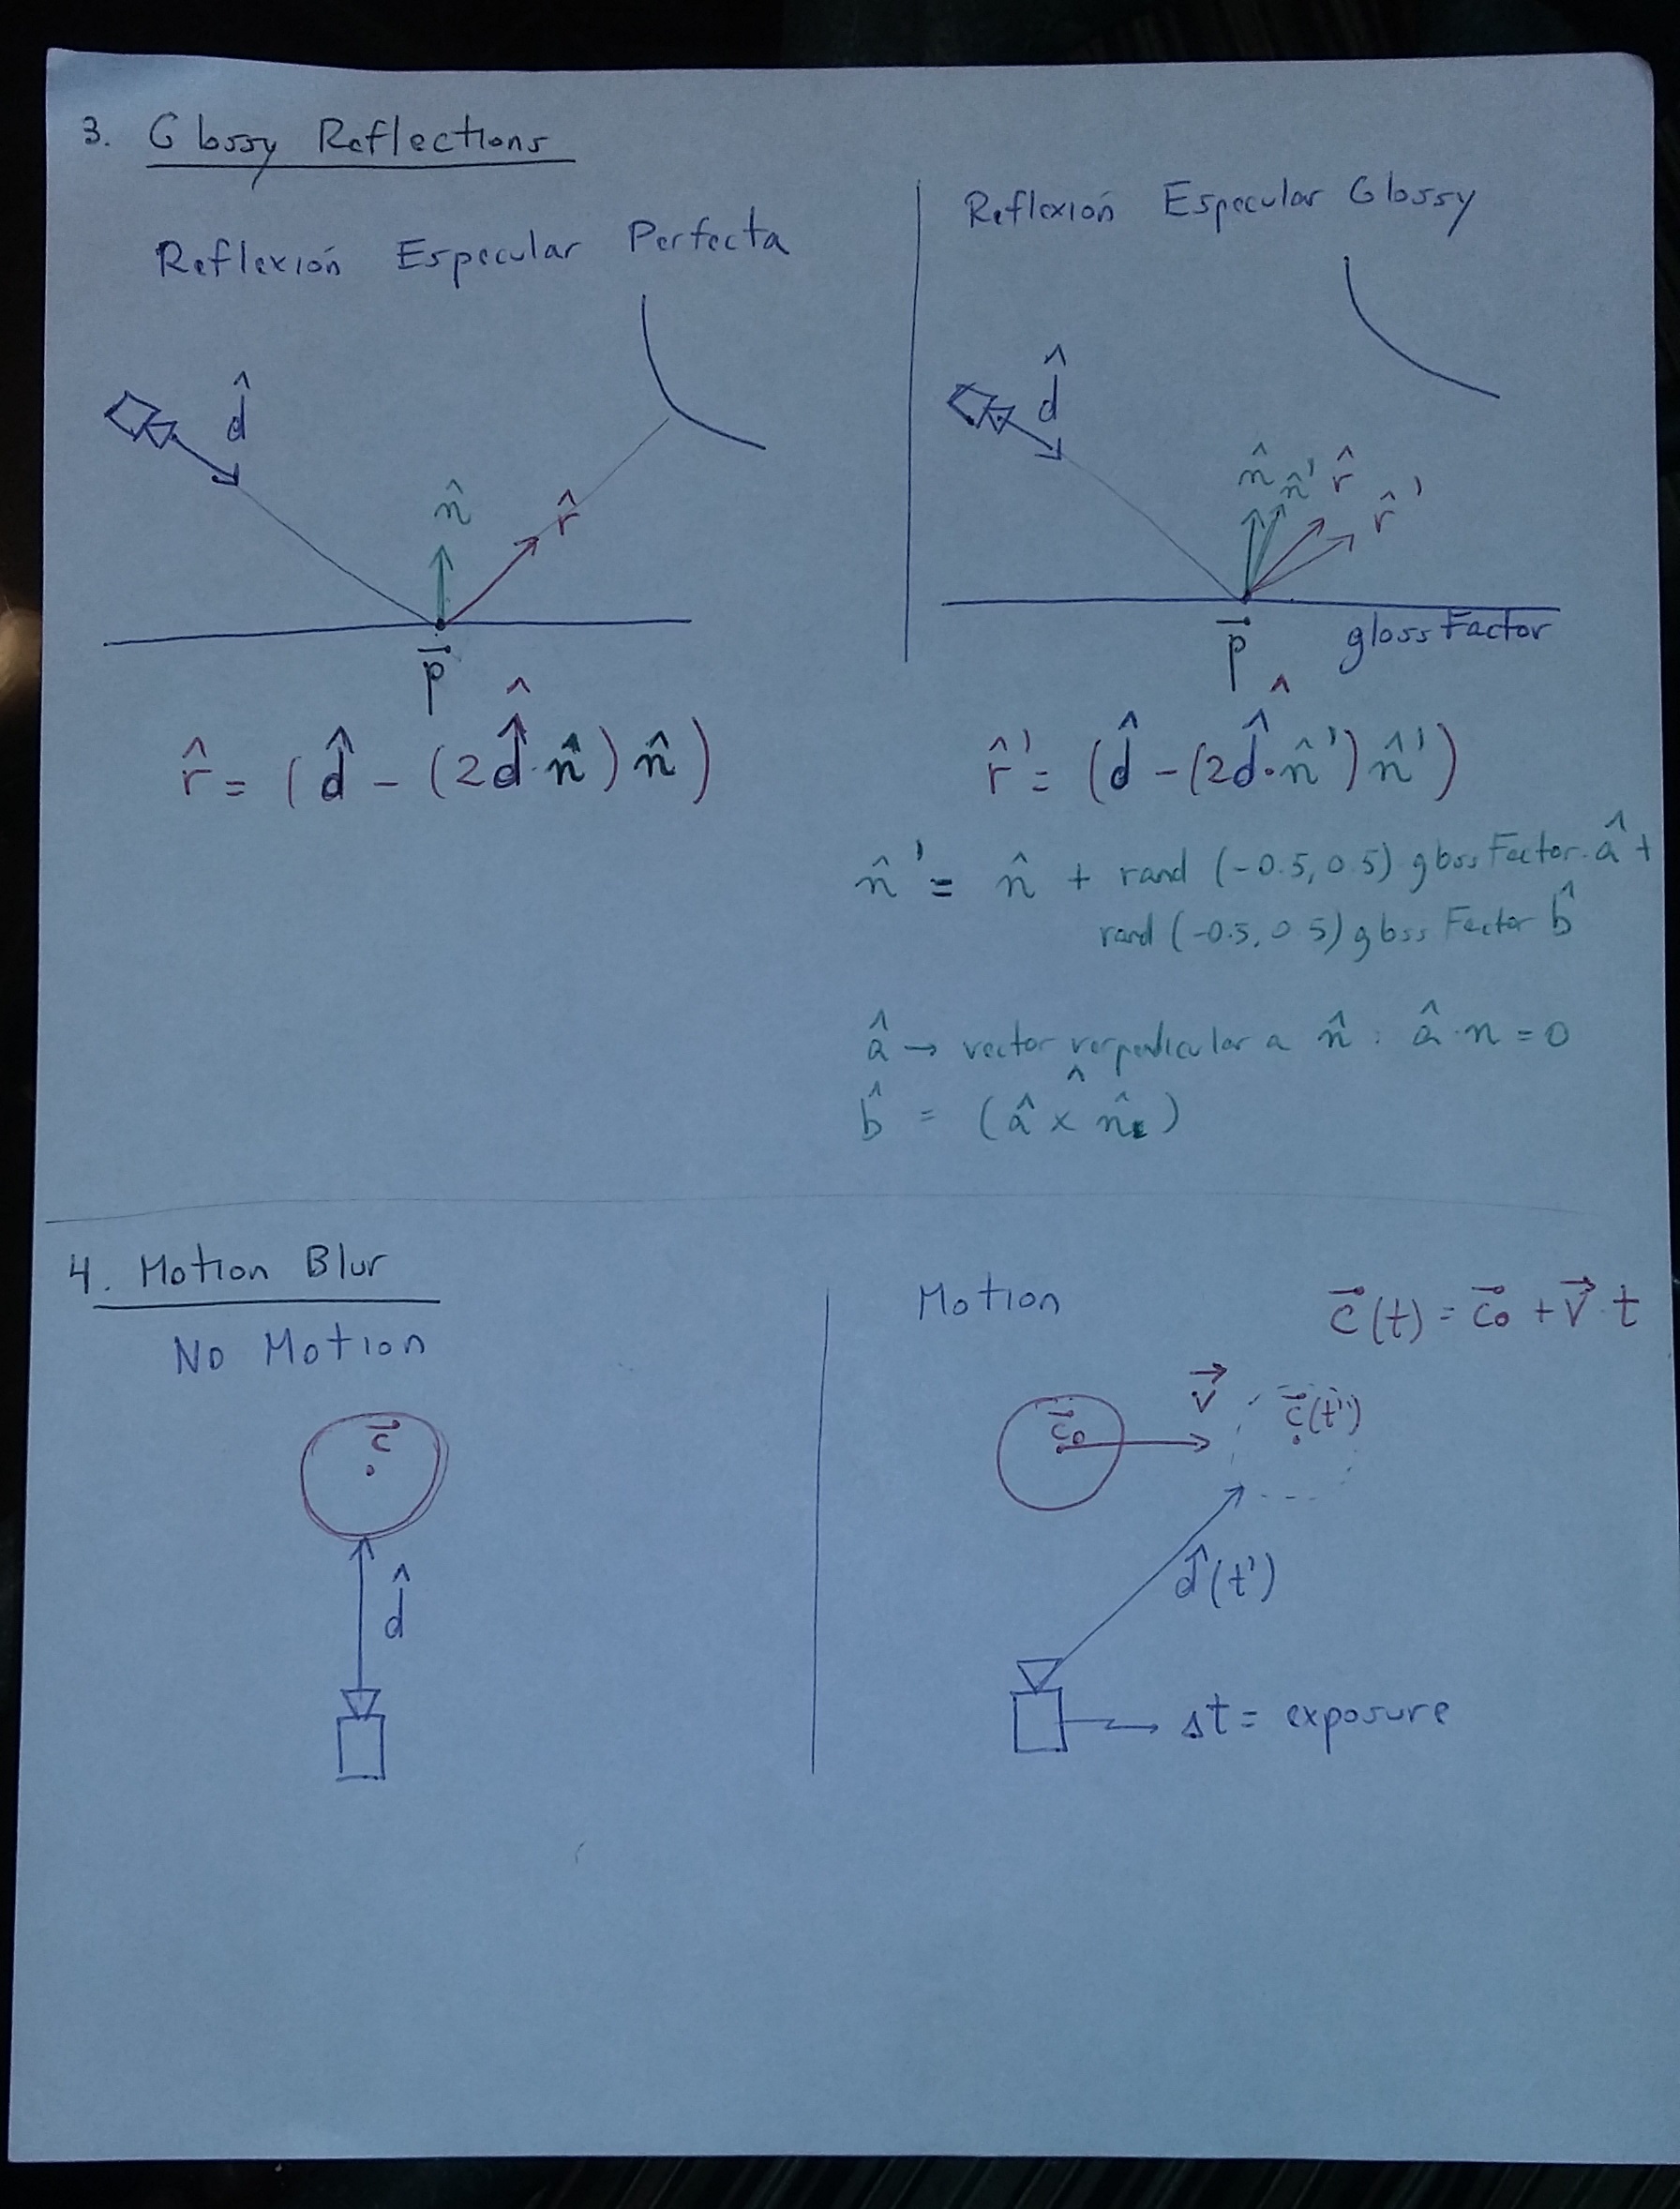 3. Glossy Reflections
Reflexión Especular Perfecta
d̂
n̂
r̂
p⃗
r̂ = (d̂ - (2d̂·n̂)n̂)^
Reflexión Especular Glossy
d̂
n̂ n̂' r̂
r̂'
p⃗
glossFactor
r̂' = (d̂ - (2d̂·n̂')n̂')^
n̂' = n̂ + rand (-0.5, 0.5) glossFactor·â +
rand (-0.5, 0.5) glossFactor b̂
â → vector perpendicular a n̂ : â·n = 0
b̂ = (â x n̂)^
4. Motion Blur
No Motion
c⃗
d̂
Motion
c⃗(t) = c⃗₀ + v⃗·t
v⃗
c⃗₀
c⃗(t')
d̂(t')
Δt = exposure